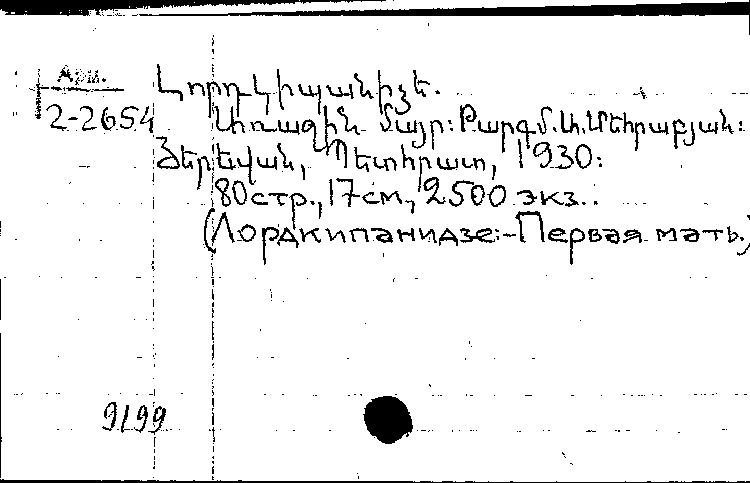 Арм.
2-2654
Լորդկիպանիձե.
Առաջին մայր: Թարգմ. Ա. Մեհրաբյան:
Յերեվան, Պետհրատ, 1930:
80стр., 17см., 2500 экз..
(Лордкипанидзе:-Первая мать.)
9199